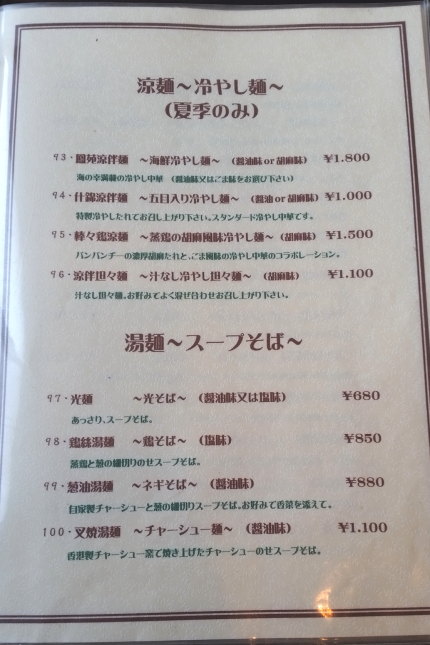 涼麺～冷やし麺～
(夏季のみ)
93・鳳苑涼伴麺 ～海鮮冷やし麺～ (醤油味or胡麻味) ¥1.800
海の幸満載の冷やし中華 (醤油味又はごま味をお選び下さい)
94・什錦涼伴麺 ～五目入り冷やし麺～ (醤油or胡麻味) ¥1.000
特製冷やしたれでお召し上がり下さい。スタンダード冷やし中華です。
95・棒々鶏涼麺 ～蒸鶏の胡麻風味冷やし麺～ (胡麻味) ¥1.500
バンバンチーの濃厚胡麻たれと、ごま風味の冷やし中華のコラボレーション。
96・涼伴坦々麺 ～汁なし冷やし坦々麺～ (胡麻味) ¥1.100
汁なし坦々麺。お好みでよく混ぜ合わせお召し上がり下さい。
湯麺～スープそば～
97・光麺 ～光そば～ (醤油味又は塩味) ¥680
あっさり、スープそば。
98・鶏絲湯麺 ～鶏そば～ (塩味) ¥850
蒸鶏と葱の細切りのせスープそば。
99・葱油湯麺 ～ネギそば～ (醤油味) ¥880
自家製チャーシューと葱の細切りスープそば。お好みで香菜を添えて。
100・叉焼湯麺 ～チャーシュー麺～ (醤油味) ¥1.100
香港製チャーシュー窯で焼き上げたチャーシューのせスープそば。